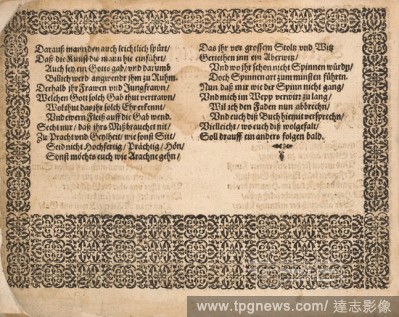 Darauß mann den auch leichtlich spürt/
Daß die Künst die mann hie einführt/
Auch sey ein Gotts gab/ vnd darumb
Billich werd angwendt jhm zu Ruhm.
Derhalb jhr Frawen vnd Jungfrawn/
Welchen Gott solch Gab thut vertrawn/
Wölt jhr solch Ehr erkennt/
Vnd ewern Fleiß auff die Gab wend.
Secht nun/ daß jhrs Mißbraucht nit/
Zu Pracht vnd Geilheit/ wie sonst Sitt/
Seid nicht Hochfertig/ Prächtig/ Hön/
Sonst möchts euch wie Arachne gehn/
Das jhr vor grossem Stoltz vnd Witz
Geriethen inn ein Aberwitz/
Vnd wo jhr schon nicht Spinnen würdt/
Doch Spinnen art zum minsten führtn.
Nun daß mir wie der Spinn nicht gang/
Vnd mich im Wepp verwirr zu lang/
Wil ich den Faden nun abbrechn/
Vnd euch diß Buch hiemit versprechn/
Vielleicht/ wo euch diß wolgefalt/
Soll drauff ein anders folgen bald.
www.tpgnews.com/ 達志影像